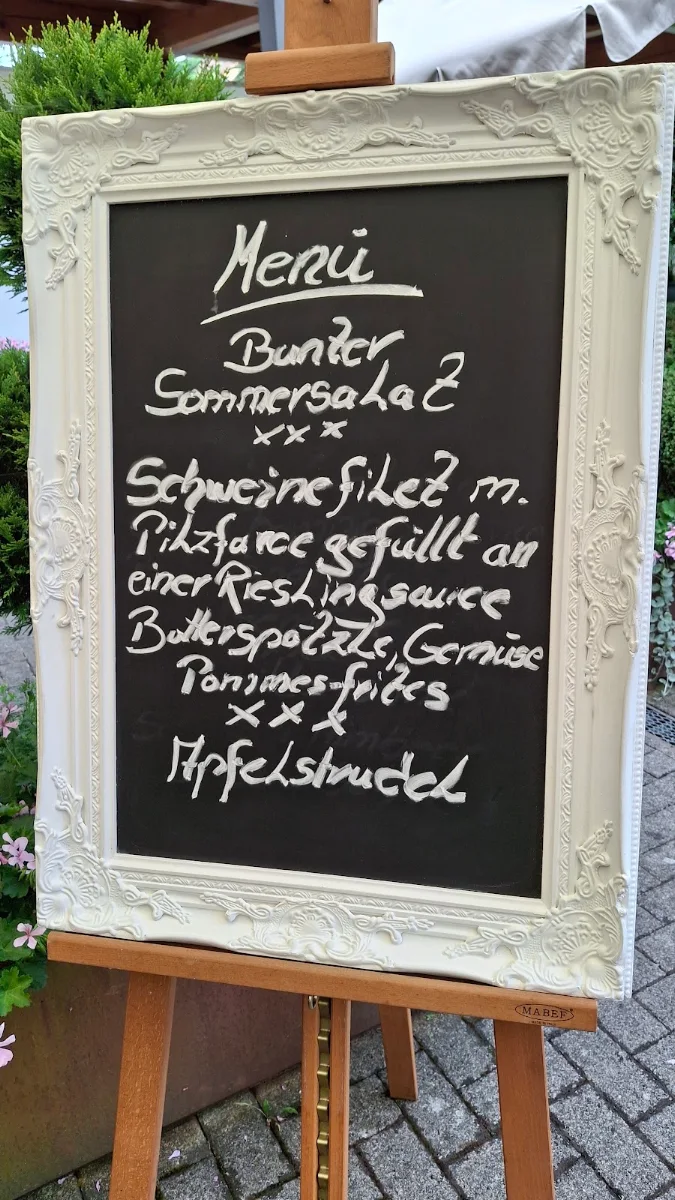 Menü
Bunter
Sommersalat
xxx
Schweinefilet m.
Pilzfarce gefüllt an
einer Rieslingsauce
Butterspätzle, Gemüse
Pommes-frites
xxx
Apfelstrudel
MABEF